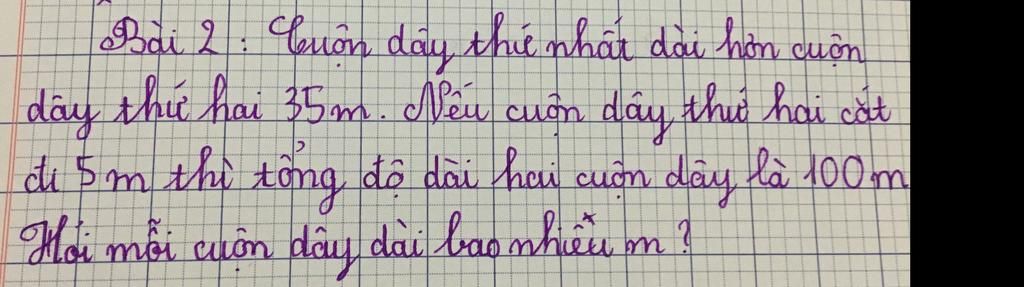 Bài 2 : Cuộn dây thứ nhất dài hơn cuộn
dây thứ hai 35m. Nếu cuộn dây thứ hai cắt
đi 5m thì tổng độ dài hai cuộn dây là 100m
Hỏi mỗi cuộn dây dài bao nhiêu m ?